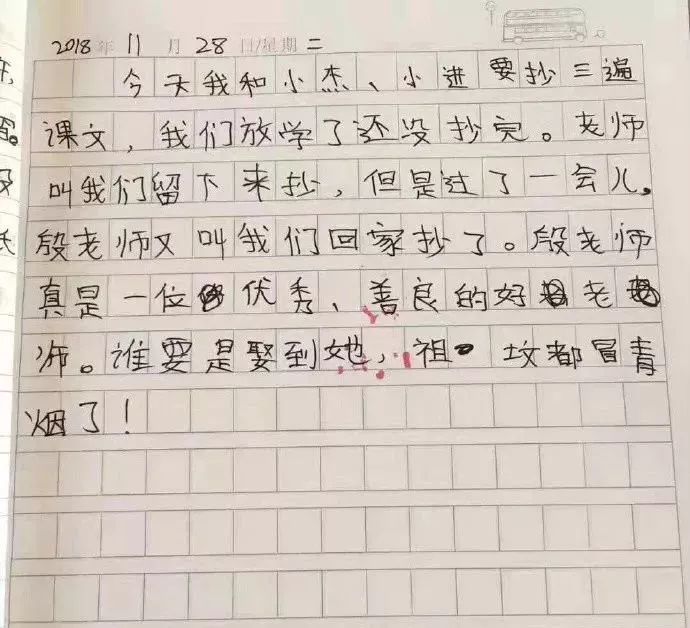 2018年 11月 28日/星期 二
今天我和小杰、小进要抄三遍
课文，我们放学了还没抄完。老师
叫我们留下来抄，但是过了一会儿。
殷老师又叫我们回家抄了。殷老师
真是一位优秀、善良的好老
师。谁要是娶到她，祖坟都冒青
烟了！